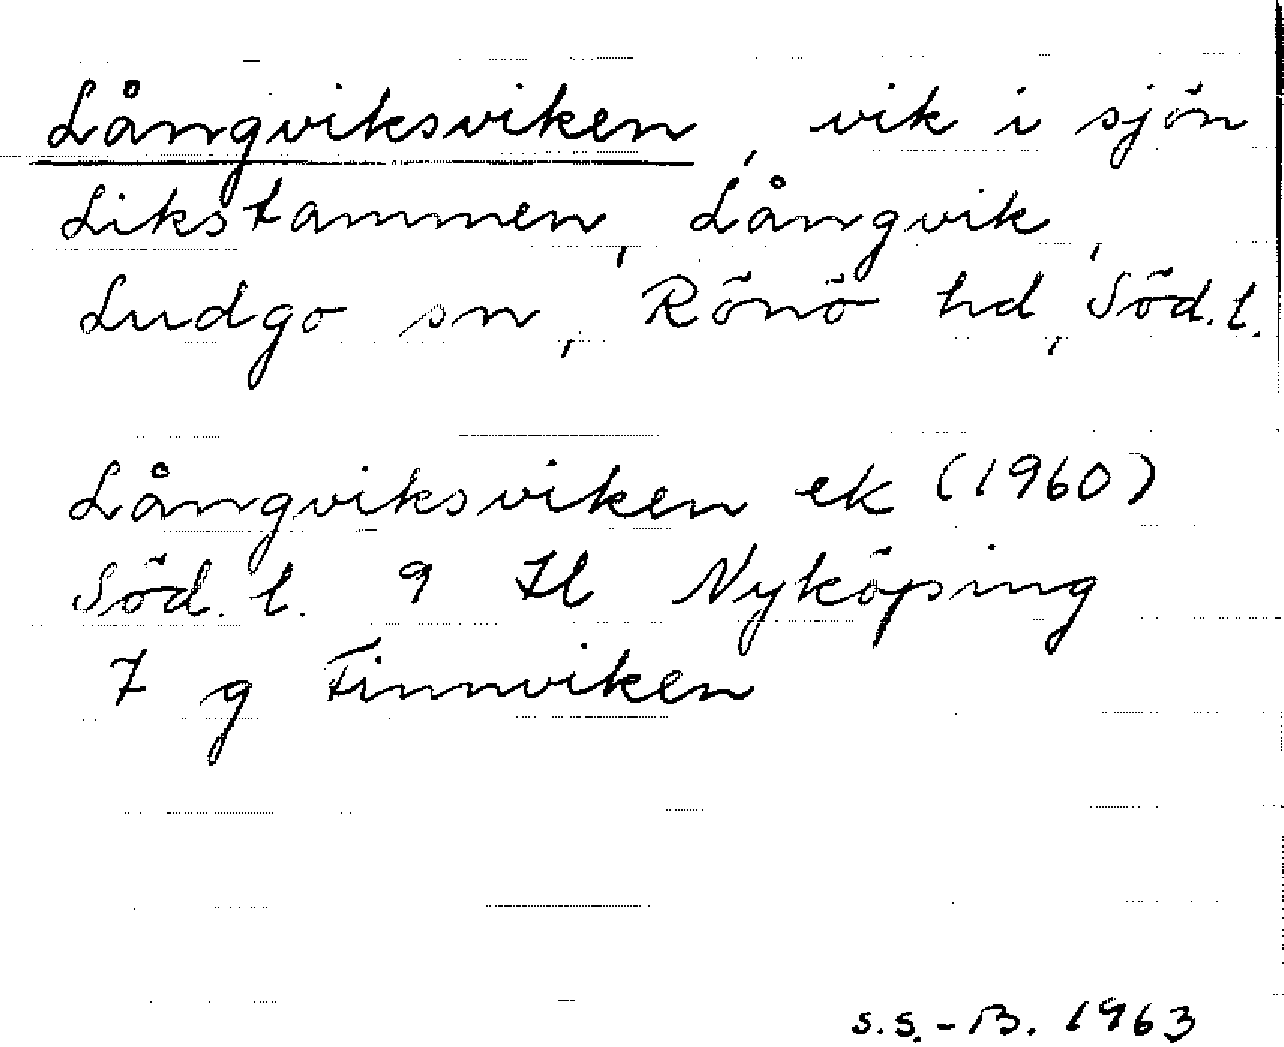 Långviksviken, vik i sjön
Likstammen, Långvik,
Ludgo sn, Rönö hd, Söd. l.
Långviksviken ek (1960)
Söd. l. 9 H Nyköping
7 g Finnviken
S.S.-B. 1963